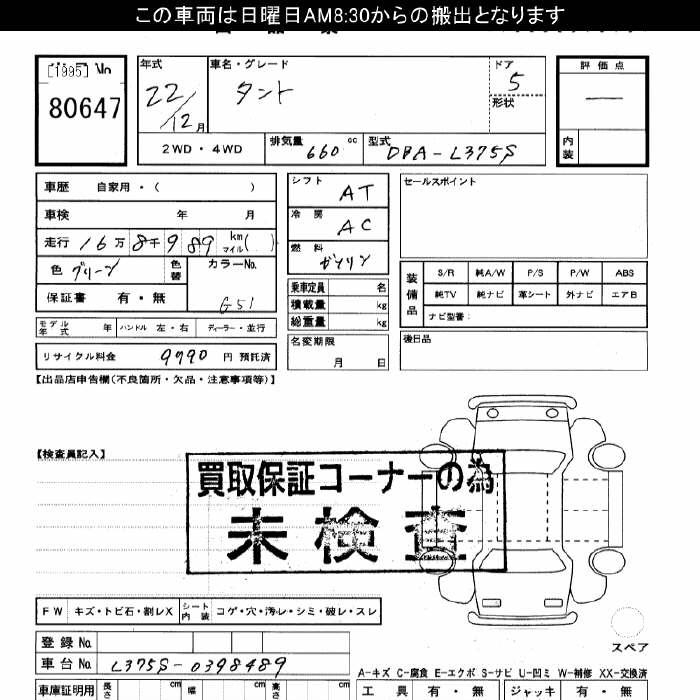 この車両は日曜日AM8:30からの搬出となります
[1995] No
80647
年式 車名・グレード ドア 評価点
22/12月 タント 5 ―
形状
2WD・4WD 排気量 660 cc 型式 DBA-L375S 内装
車歴 自家用・( )
車検 年 月
走行 16万8千989 km マイル( )
色 グリーン 色替 カラーNo. G51
保証書 有・無
モデル年式 年 ハンドル 左・右 ディーラー・並行
リサイクル料金 9790 円 預託済
シフト AT
冷房 AC
燃料 ガソリン
乗車定員 名
積載量 kg
総重量 kg
名変期限 月 日
セールスポイント
装備品 S/R 純A/W P/S P/W ABS
純TV 純ナビ 革シート 外ナビ エアB
ナビ型番:
後日品
【出品店申告欄(不良箇所・欠品・注意事項等)】
【検査員記入】
買取保証コーナーの為
未検査
FW キズ・トビ石・割レX シート内装 コゲ・穴・汚レ・シミ・破レ・スレ
スペア
登録No.
車台No. L375S-0398489
A-キズ C-腐食 E-エクボ S-サビ U-凹ミ W-補修 XX-交換済
車庫証明用 長さ cm 幅 cm 高さ cm 工具 有・無 ジャッキ 有・無